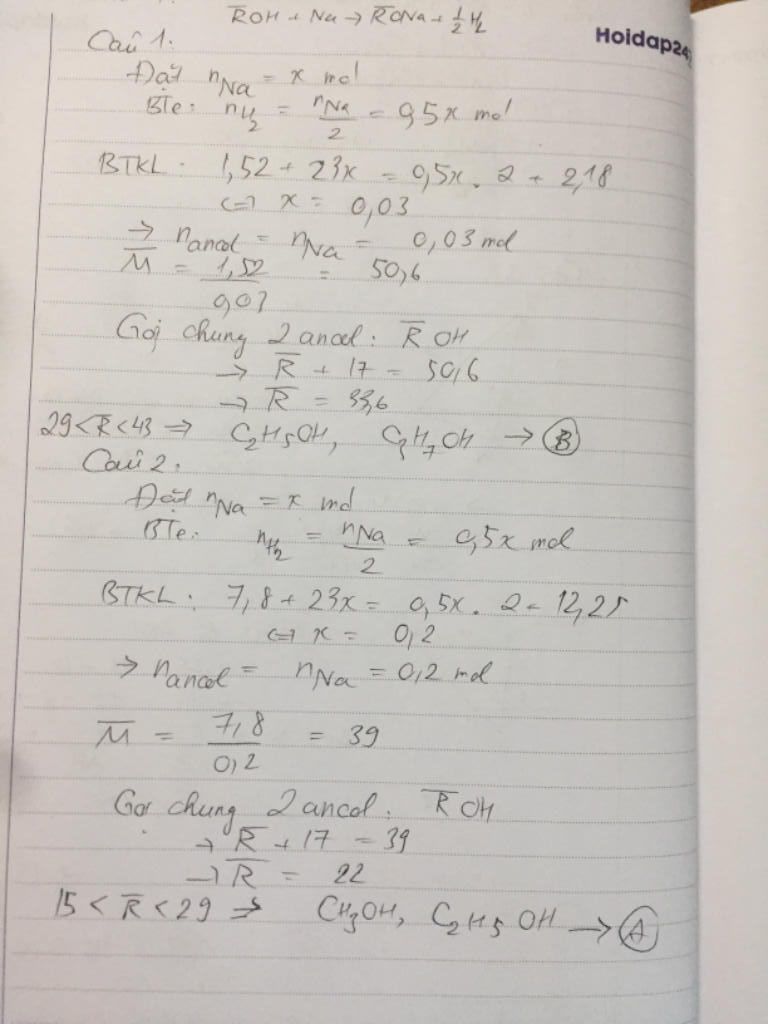 R̅OH + Na → R̅ONa + 1/2 H₂
Hoidap24
Câu 1:
Đặt nNa = x mol
BTe: nH₂ = nNa/2 = 0,5x mol
BTKL: 1,52 + 23x = 0,5x . 2 + 2,18
<=> x = 0,03
→ nancol = nNa = 0,03 mol
M̅ = 1,52/0,03 = 50,6
Gọi chung 2 ancol: R̅OH
→ R̅ + 17 = 50,6
→ R̅ = 33,6
29 < R̅ < 43 => C₂H₅OH, C₃H₇OH → B
Câu 2:
Đặt nNa = x mol
BTe: nH₂ = nNa/2 = 0,5x mol
BTKL: 7,8 + 23x = 0,5x . 2 + 12,25
<=> x = 0,2
→ nancol = nNa = 0,2 mol
M̅ = 7,8/0,2 = 39
Gọi chung 2 ancol: R̅OH
→ R̅ + 17 = 39
→ R̅ = 22
15 < R̅ < 29 => CH₃OH, C₂H₅OH → A